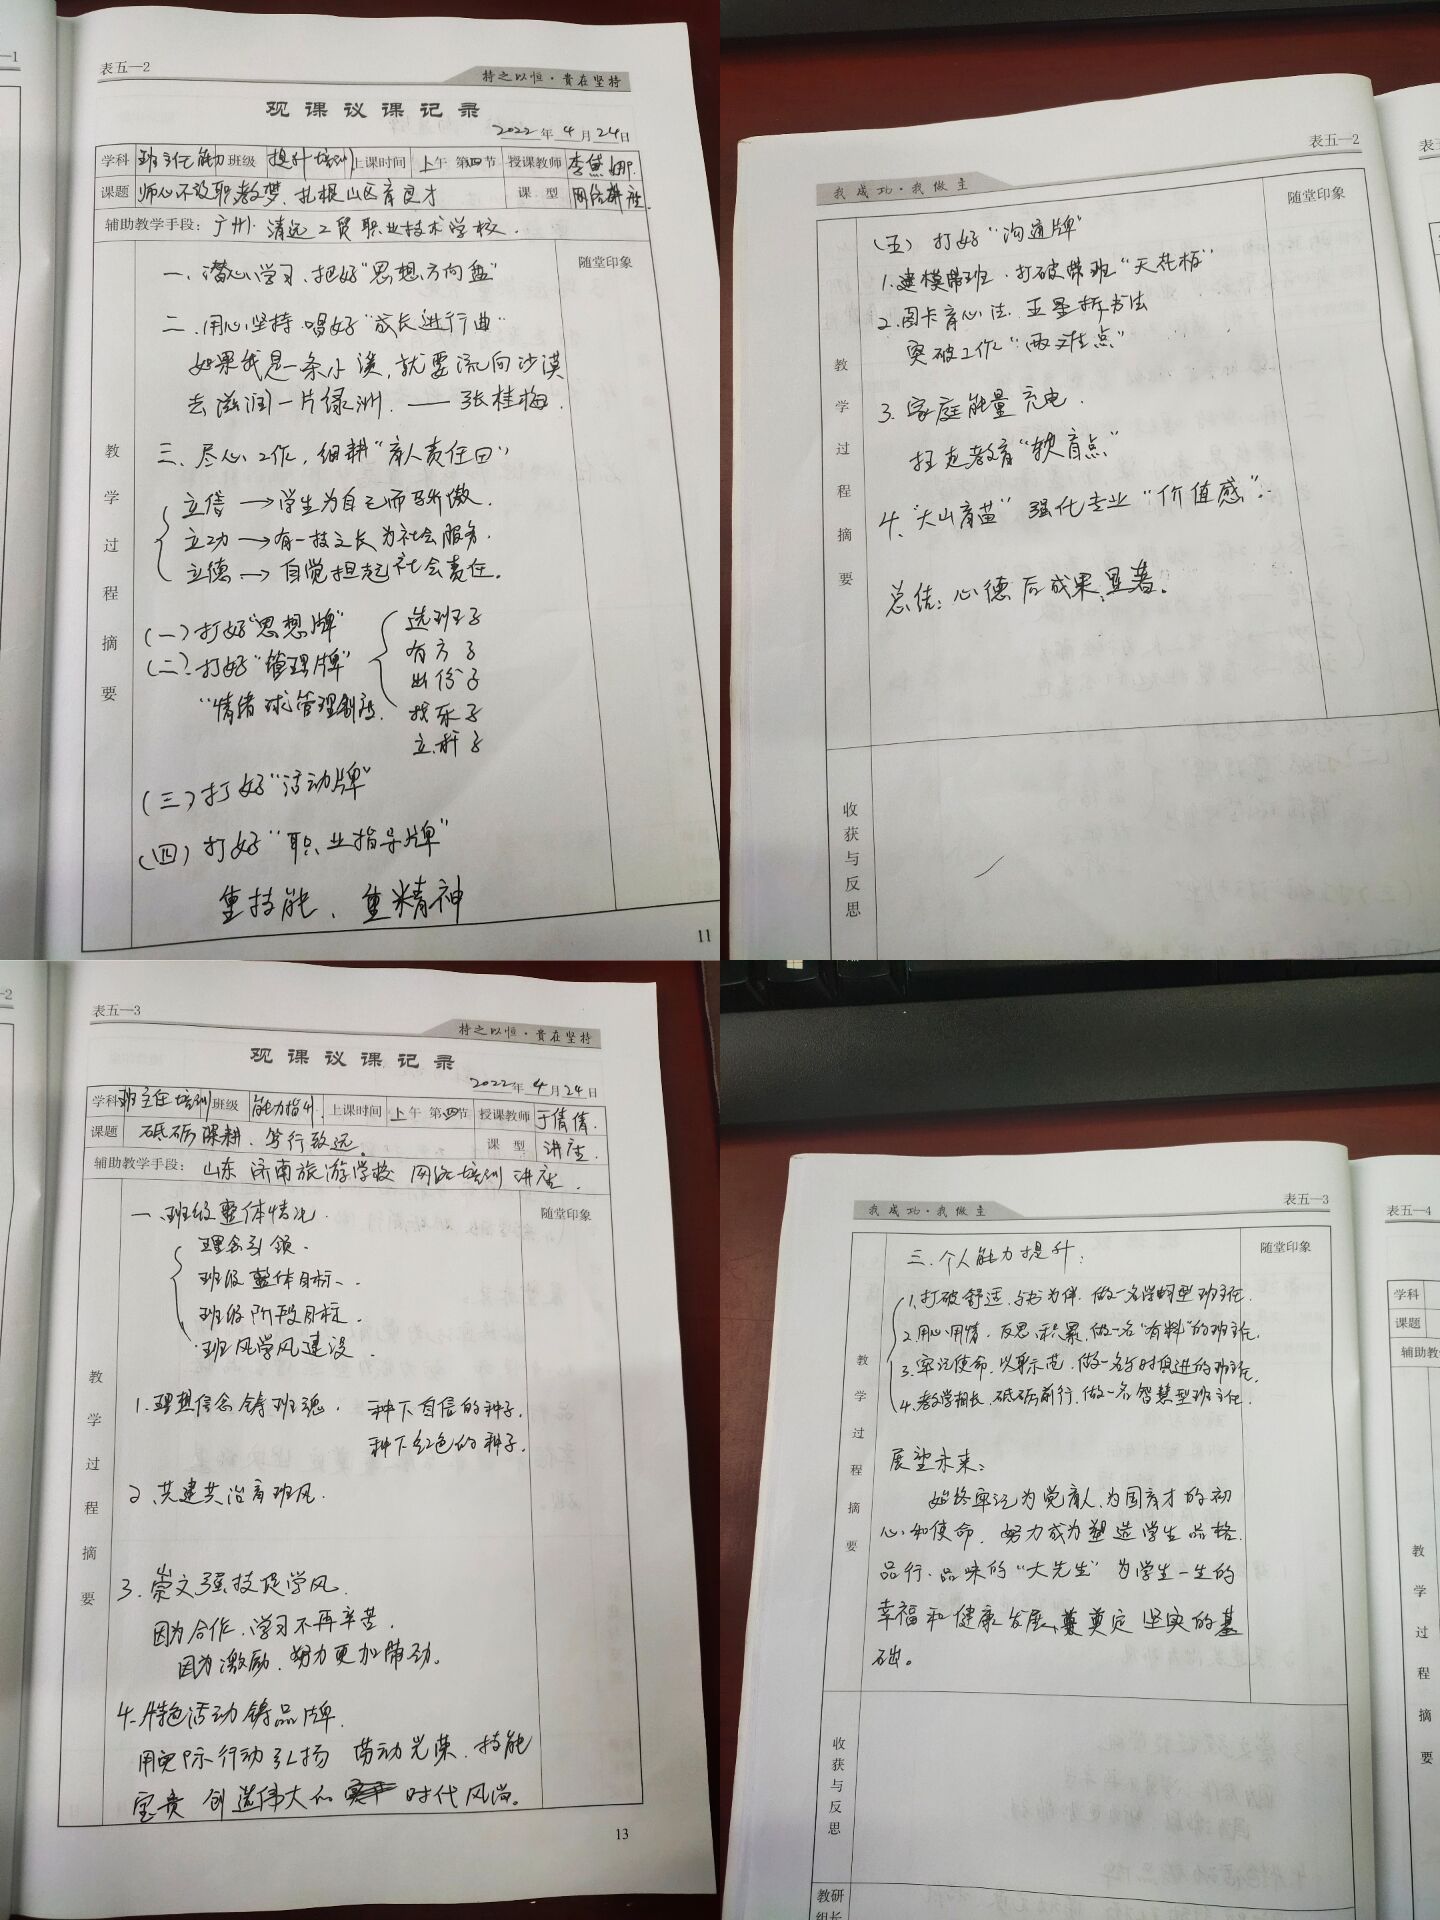 表五—2
持之以恒·贵在坚持
观课议课记录
2022年4月24日
学科 班主任能力 班级 提升培训 上课时间 上午 第四节 授课教师 李黛娜
课题 师心不改职教梦、扎根山区育良才 课型 网络讲座
辅助教学手段：广州 清远工贸职业技术学校.
随堂印象
教学过程摘要
一、潜心学习,把好“思想方向盘”
二、用心坚持 唱好“成长进行曲”
如果我是一条小溪,就要流向沙漠
去滋润一片绿洲. —— 张桂梅.
三、尽心工作,细耕“育人责任田”
立信 → 学生为自己而骄傲.
立功 → 有一技之长为社会服务.
立德 → 自觉担起社会责任.
(一)打好“思想牌”
(二).打好“管理牌”
“情绪球管理制度.
选班子
有方子
出份子
找乐子
立杆子
(三)打好“活动牌”
(四)打好“职业指导牌”
重技能、重精神
11
表五—2
我成功·我做主
随堂印象
教学过程摘要
(五)打好“沟通牌”
1.建模带班.打破带班“天花板”
2.图卡育心法.亚墨拆书法
突破工作“两难点”
3.家庭能量充电.
扫走教育“软盲点”
4、“大山育苗”强化专业“价值感”.
总结:心德后成果显著.
收获与反思
表五—3
持之以恒·贵在坚持
观课议课记录
2022年4月24日
学科 班主任培训 班级 能力提升. 上课时间 上午 第四节 授课教师 于倩倩.
课题 砥砺深耕、笃行致远。 课型 讲座.
辅助教学手段：山东 济南旅游学校 网络培训讲座.
随堂印象
教学过程摘要
一、班级整体情况.
理念引领.
班级整体目标、.
班级阶段目标.
班风学风建设.
1.理想信念铸班魂. 种下自信的种子.
种下红色的种子.
2、共建共治育班风.
3.崇文强技促学风.
因为合作,学习不再辛苦.
因为激励.努力更加带劲。
4.特色活动铸品牌.
用实际行动引扬 劳动光荣.技能
宝贵 创造伟大的 时代风尚。
13
表五—3
我成功·我做主
随堂印象
教学过程摘要
三.个人能力提升:
1.打破舒适、与书为伴.做一名学习型班主任.
2.用心用情.反思.积累.做一名“有料”的班主任.
3.牢记使命.以身示范.做一名与时俱进的班主任.
4.教学相长、砥砺前行,做一名智慧型班主任.
展望未来:
始终牢记为党育人.为国育才的初
心和使命,努力成为塑造学生品格.
品行.品味的“大先生”为学生一生的
幸福和健康发展、奠定坚实的基
础。
收获与反思
教研
组长
表五—4
学科
课题
辅助教
教学过程摘要